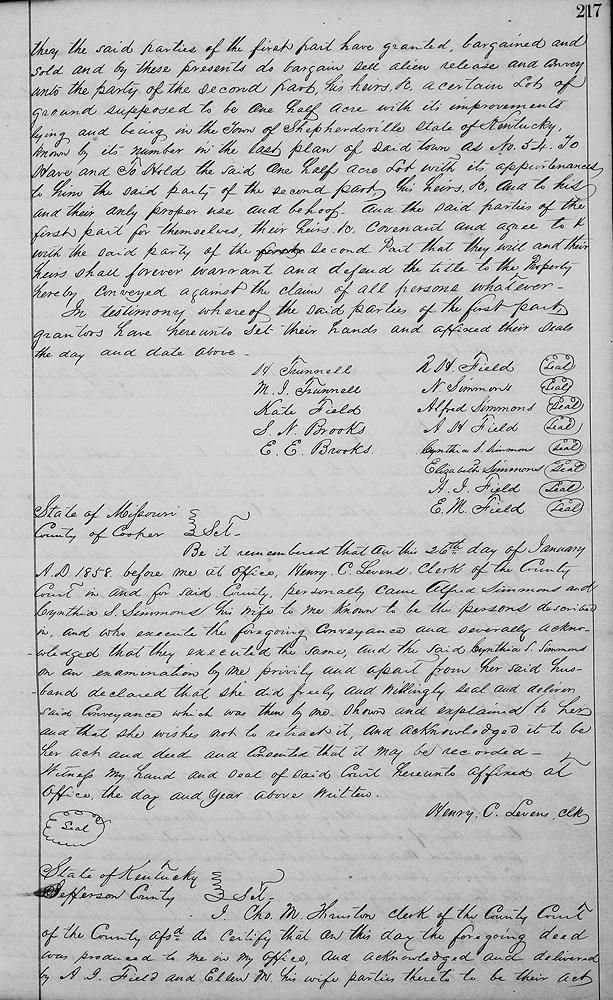 217
they the said parties of the first part have granted, bargained and
sold and by these presents do bargain sell alien release and convey
unto the party of the second part, his heirs, &c, a certain Lot of
ground supposed to be One half acre with its improvements
lying and being in the Town of Shepherdsville State of Kentucky,
known by its number in the last plan of said town as No. 54. To
Have and To Hold the said One half acre Lot with its appurtenances
to him the said party of the second part, his heirs, &c, and to his
and their only proper use and behoof. And the said parties of the
first part for themselves, their heirs, &c. Covenant and agree to &
with the said party of the second Part that they will and their
heirs shall forever warrant and defend the title to the Property
hereby conveyed against the claim of all persons whatever-
In testimony whereof the said parties of the first part,
grantors have hereunto set their hands and affixed their seals
the day and date above-
H Trunnell R H Field (Seal)
M. J. Trunnell N Simmons (Seal)
Kate Field Alfred Simmons (Seal)
S. N. Brooks A H Field (Seal)
E. E. Brooks. Cynthia S. Simmons (Seal)
Elizabeth Simmons (Seal)
A. J. Field (Seal)
E. M. Field (Seal)
State of Missouri
County of Cooper Sct-
Be it remembered that on this 26th day of January
A.D. 1858. before me at Office, Henry. C. Levens. Clerk of the County
Court in and for said County, personally came Alfred Simmons and
Cynthia S. Simmons his wife to me known to be the persons described
in, and who execute the foregoing Conveyance and severally ackno-
wledged that they executed the same, and the said Cynthia S. Simmons
on an examination by me privily and apart from her said hus-
band declared that she did freely and willingly seal and deliver
said Conveyance which was then by me shown and explained to her
and that she wishes not to retract it, and acknowledged it to be
her act and deed and consented that it may be recorded-
Witness my hand and seal of said Court hereunto affixed at
Office, the day and year above written.
Henry. C. Levens, clk
(Seal)
State of Kentucky
Jefferson County Sct-
I Tho. M. Huston clerk of the County Court
of the County afsd. do certify that on this day the foregoing deed
was produced to me in my office, and acknowledged and delivered
by A J. Field and Ellen M. his wife parties thereto to be their act